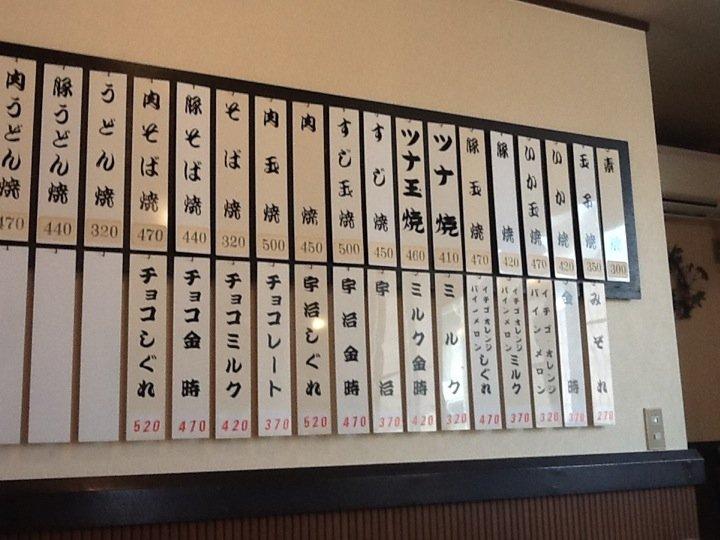 素焼 300
玉子焼 350
いか焼 420
いか玉焼 470
豚焼 420
豚玉焼 470
ツナ焼 410
ツナ玉焼 460
すじ焼 450
すじ玉焼 500
肉焼 450
肉玉焼 500
そば焼 320
豚そば焼 440
肉そば焼 470
うどん焼 320
豚うどん焼 440
肉うどん焼 470
みぞれ 270
金時 370
イチゴ オレンジ
パイン メロン
320
イチゴオレンジ
パインメロン
ミルク 370
イチゴオレンジ
パインメロン
しぐれ 470
ミルク 320
ミルク金時 420
宇治 370
宇治金時 470
宇治しぐれ 520
チョコレート 370
チョコミルク 420
チョコ金時 470
チョコしぐれ 520